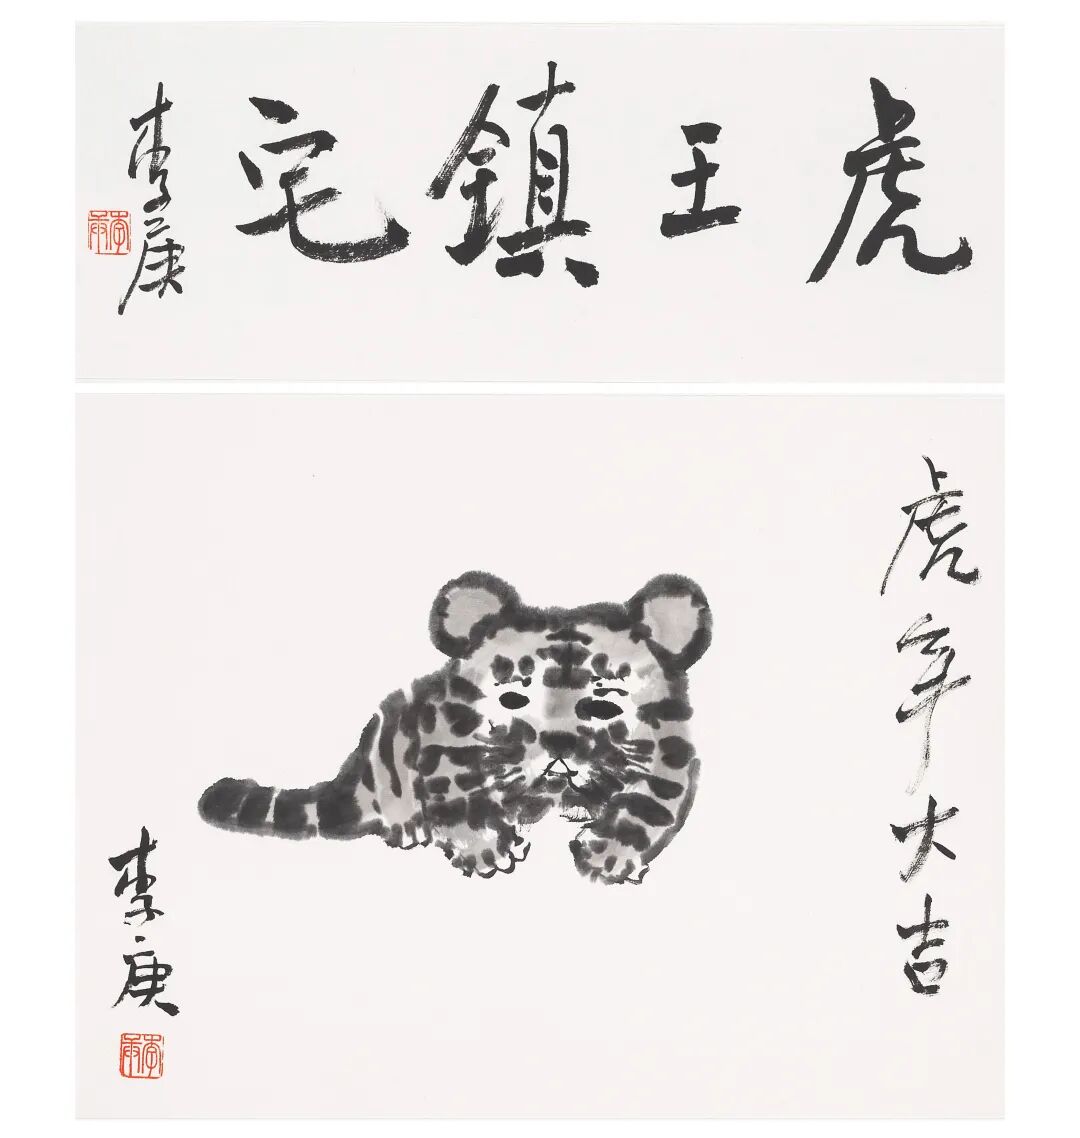 虎王鎮宅
李庚
虎年大吉
李庚